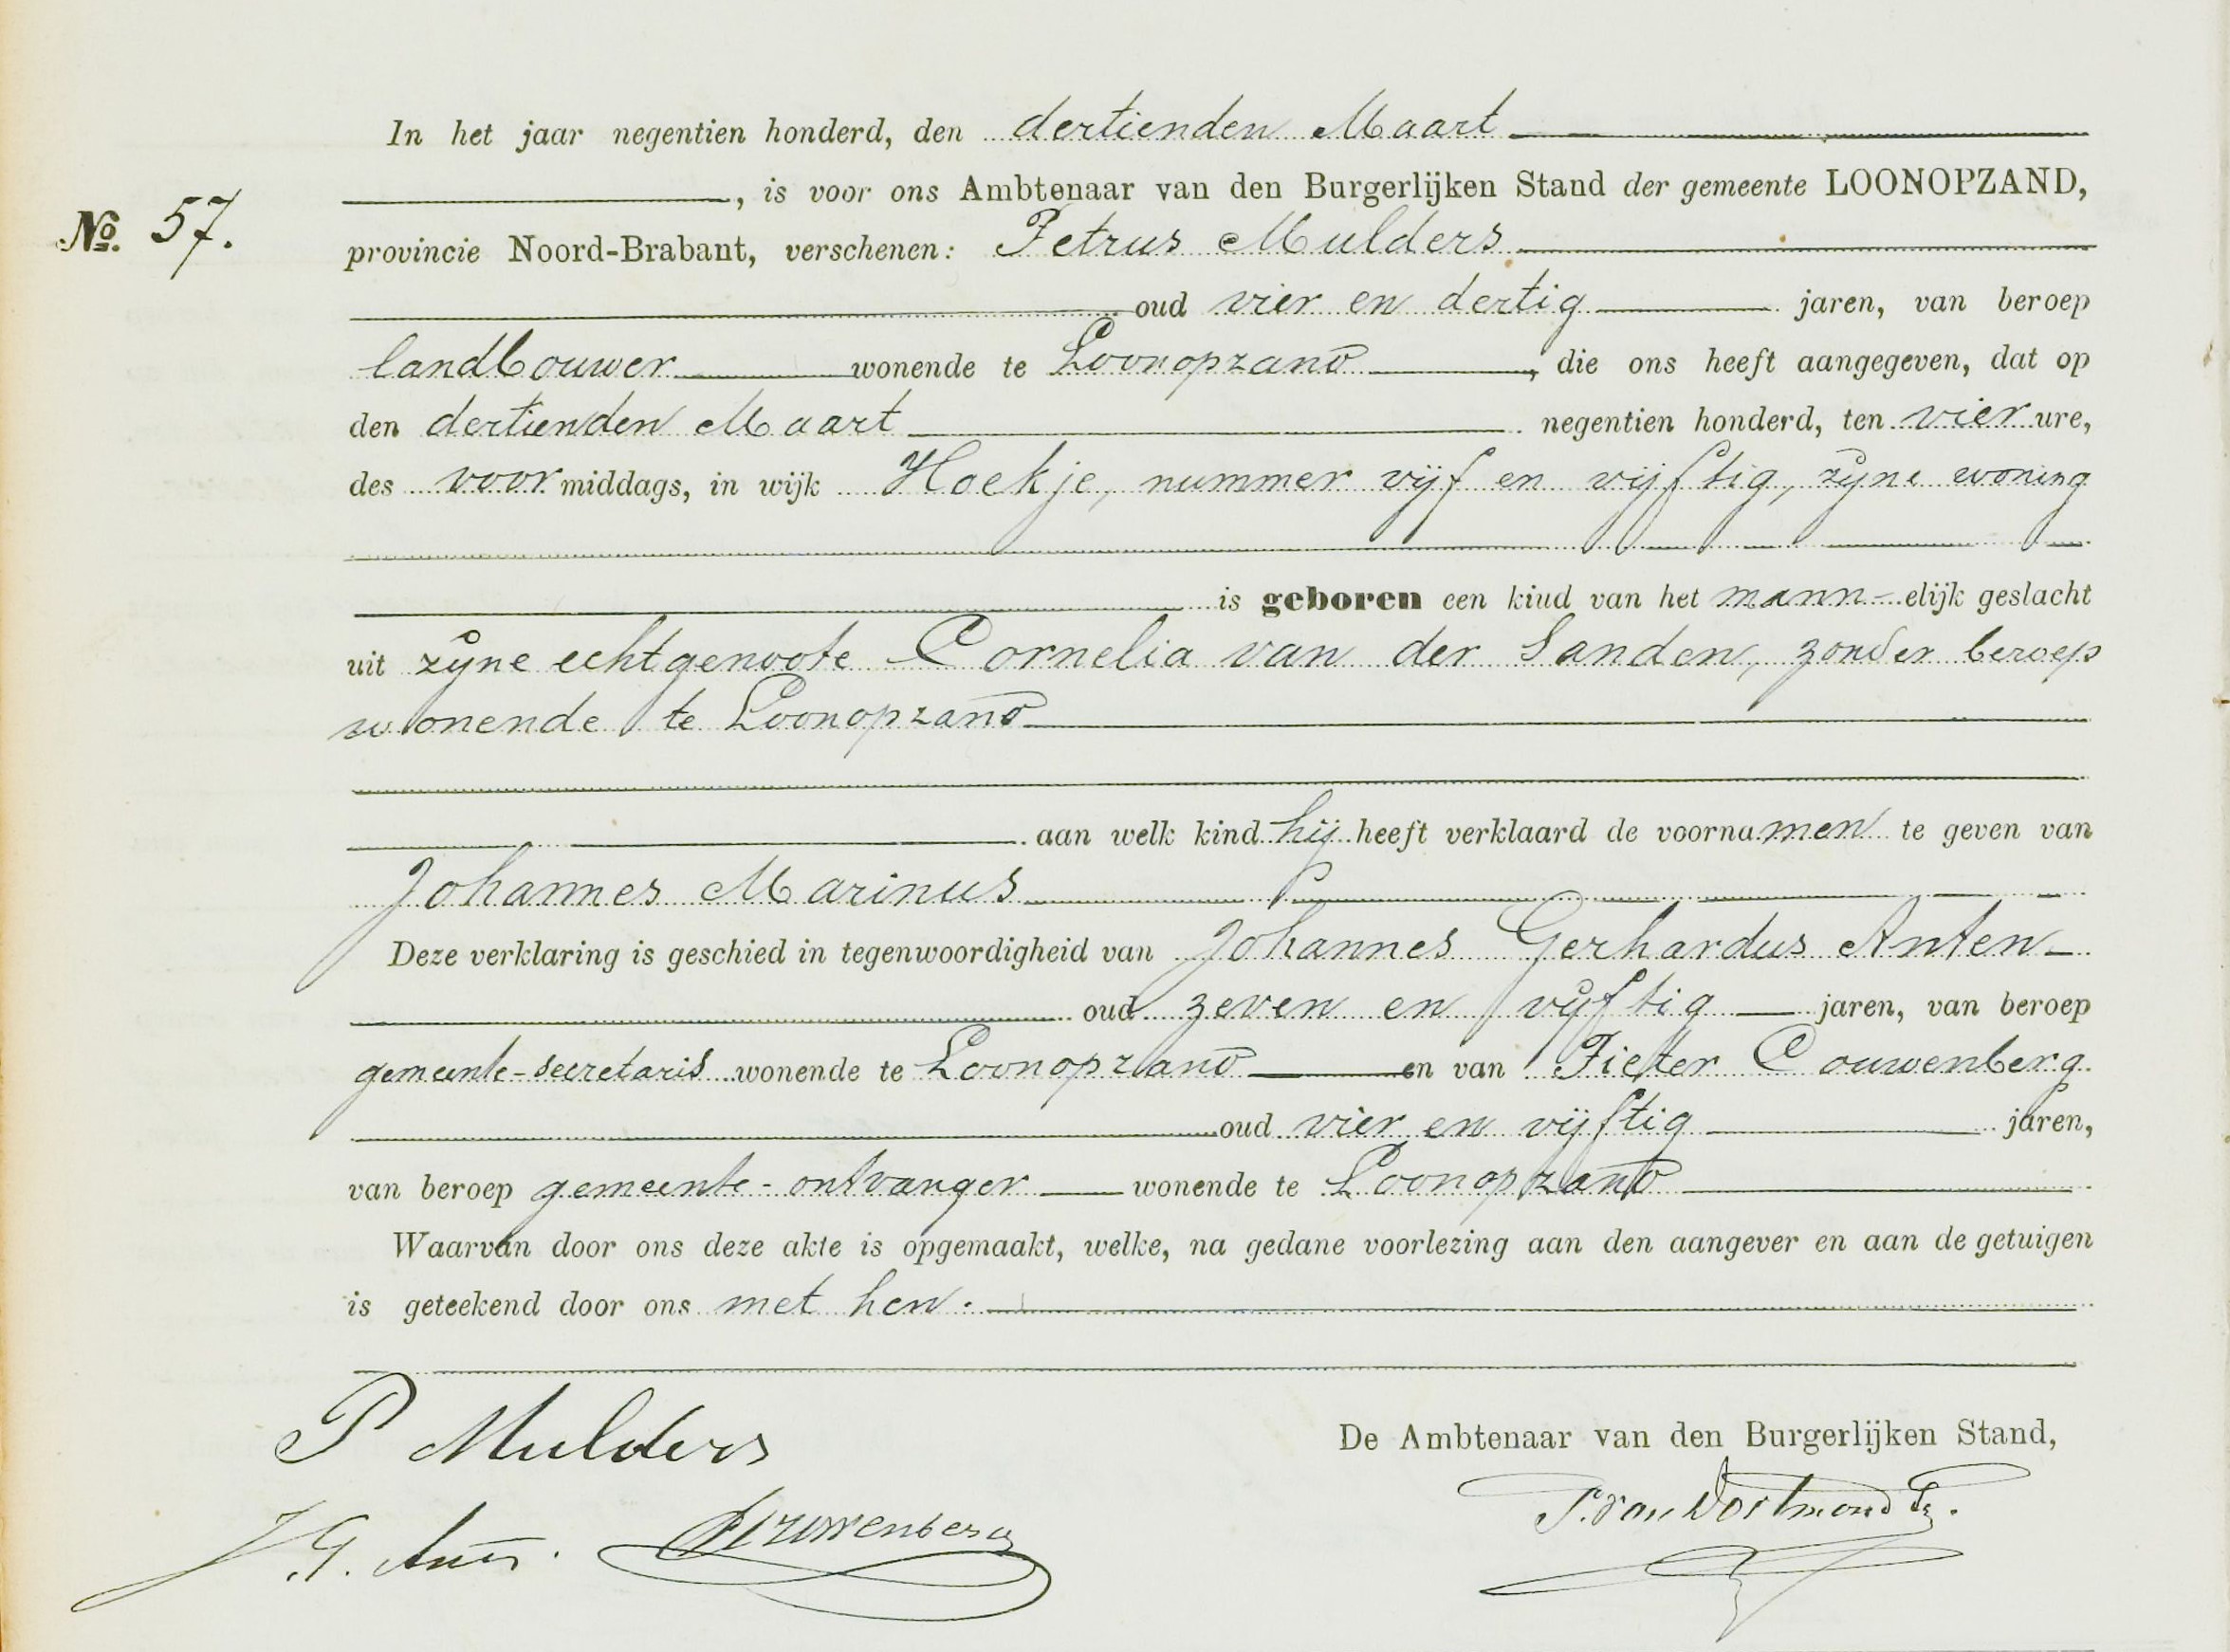 In het jaar negentien honderd, den dertienden Maart
, is voor ons Ambtenaar van den Burgerlijken Stand der gemeente LOONOPZAND,
No. 57.
provincie Noord-Brabant, verschenen: Petrus Mulders
oud vier en dertig jaren, van beroep
landbouwer wonende te Loonopzand, die ons heeft aangegeven, dat op
den dertienden Maart negentien honderd, ten vier ure,
des voormiddags, in wijk Hoekje, nummer vijf en vijftig, zijne woning
is geboren een kind van het mann-elijk geslacht
uit zijne echtgenoote Cornelia van der Sanden, zonder beroep
wonende te Loonopzand
aan welk kind hij heeft verklaard de voornamen te geven van
Johannes Marinus
Deze verklaring is geschied in tegenwoordigheid van Johannes Gerhardus Anten
oud zeven en vijftig jaren, van beroep
gemeente-secretaris wonende te Loonopzand en van Pieter Couwenberg
oud vier en vijftig jaren,
van beroep gemeente-ontvanger wonende te Loonopzand
Waarvan door ons deze akte is opgemaakt, welke, na gedane voorlezing aan den aangever en aan de getuigen
is geteekend door ons met hen.
P Mulders
De Ambtenaar van den Burgerlijken Stand,
P. van Dortmond
J. G. Anten. PCouwenberg